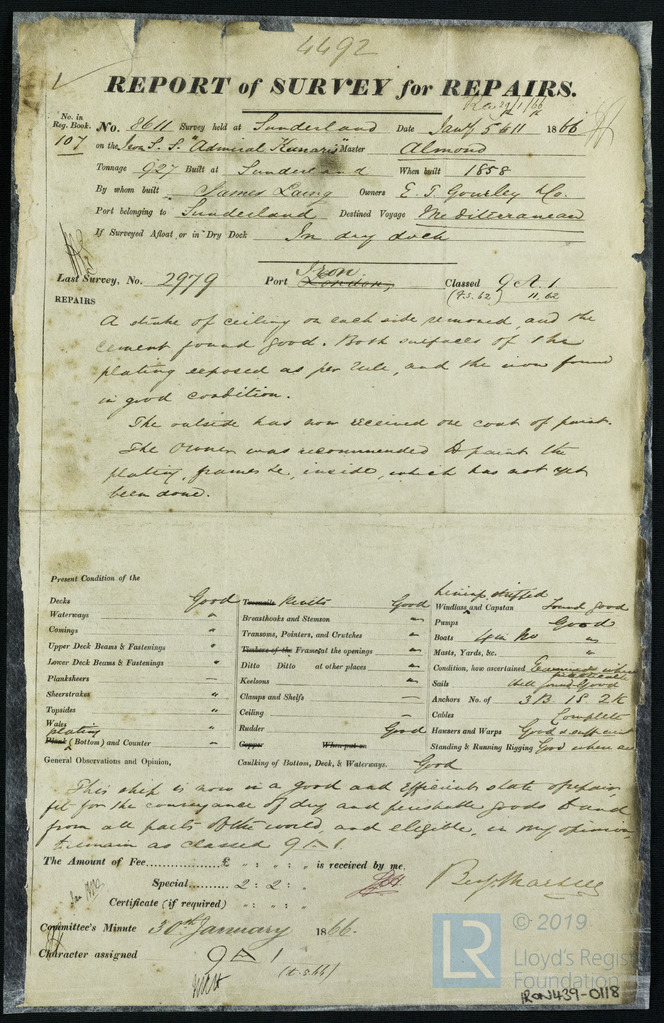 4492
REPORT of SURVEY for REPAIRS.
No. in Reg. Book. 107
No. 8611 Survey held at Sunderland Date Jany 5 & 11 1866
on the Iron S.S. "Admiral Kanaris" Master Almond
Tonnage 927 Built at Sunderland When built 1858
By whom built James Laing Owners E. T. Gourley & Co.
Port belonging to Sunderland Destined Voyage Mediterranean
If Surveyed Afloat, or in Dry Dock In dry dock
Iron.
Last Survey, No. 2979 Port London, Classed 9 A 1
11, 62
REPAIRS
A strake of ceiling on each side removed, and the
cement found good. Both surfaces of the
plating exposed as per rule, and the iron found
in good condition.
The outside has now received one coat of paint.
The owner was recommended to paint the
plating, frames &c, inside, which has not yet
been done.
Present Condition of the
Decks Good
Waterways "
Comings "
Upper Deck Beams & Fastenings "
Lower Deck Beams & Fastenings "
Planksheers —
Sheerstrakes "
Topsides "
Wales "
plating
Plank (Bottom) and Counter "
Treenails Rivets Good
Breasthooks and Stemson "
Transoms, Pointers, and Crutches "
Timbers of the Frames at the openings "
Ditto Ditto at other places "
Keelsons "
Clamps and Shelfs —
Ceiling —
Rudder Good
Copper When put on
Caulking of Bottom, Deck, & Waterways. Good
linings shifted
Windlass and Capstan Found good
Pumps Good
Boats 4 in No "
Masts, Yards, &c. "
Condition, how ascertained Examined where practicable
Sails All found Good
Anchors No. of 3 B 1 S. 2 K
Cables Complete
Hausers and Warps Good & sufficient
Standing & Running Rigging Good where
General Observations and Opinion,
This ship is now in a good and efficient state of repair
fit for the conveyance of dry and perishable goods to and
from all parts of the world, and eligible, in my opinion,
to remain as classed 9 A 1.
The Amount of Fee...... £ " : " : " is received by me,
Special...... 2 : 2 : "
Certificate (if required) " : " : "
Committee's Minute 30th January 1866.
Character assigned 9 A 1
© 2019
LR
Lloyd's Register
Foundation
IRON439-0118